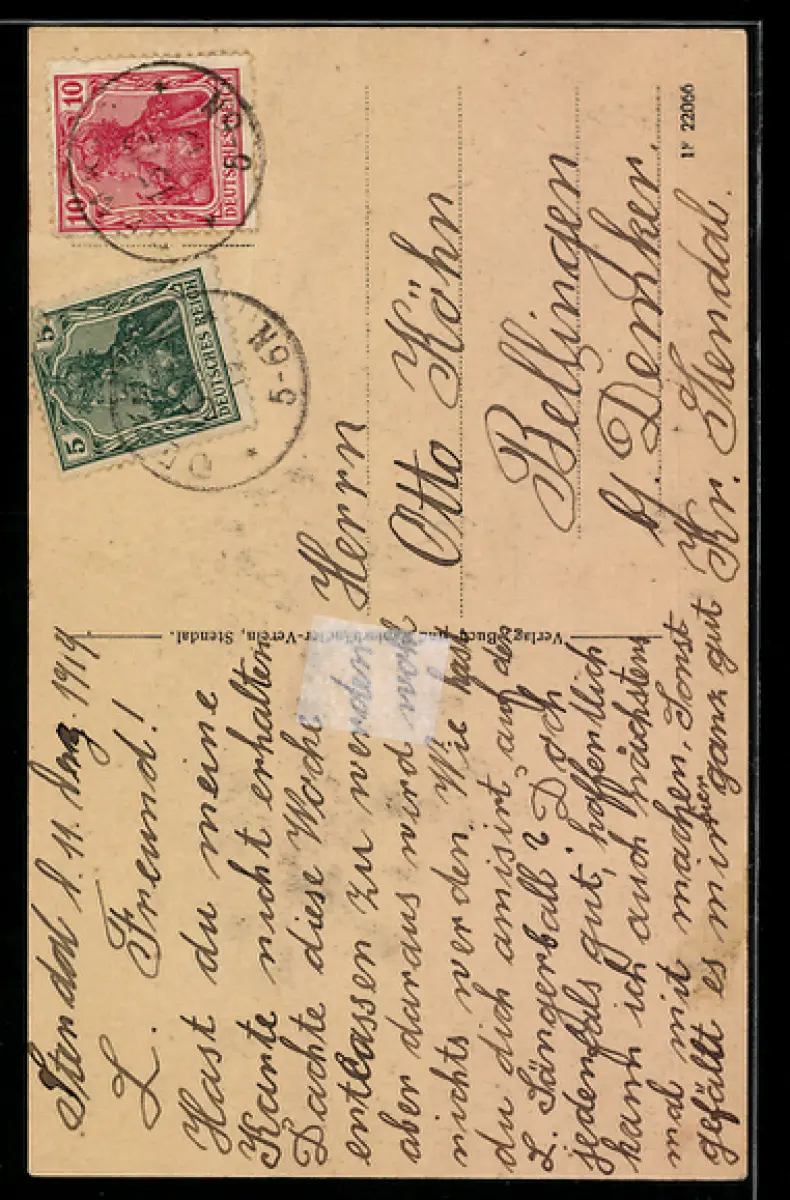 Stendal d. 11. Denz. 1919
L. Freund!
Hast du meine
Karte nicht erhalten
Dachte diese Woche
entlassen zu werden
aber daraus wird wohl
nichts werden. Wie hast
du dich amisirt auf den
L. Sängerball? Doch
jedenfals gut, hoffentlich
kann ich auch nächstens
mal mit machen. Sonst
gefällt es mir hier ganz gut
Verlag: Buch- und -Verein, Stendal.
Herrn
Otto Köhn
Bellingen
b/. Demker.
Kr. Stendal.
1F 22066
10 10
DEUTSCHES REICH
5 5
DEUTSCHES REICH
5-6N